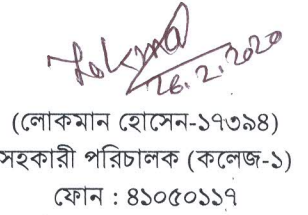 26.2.2020
(লোকমান হোসেন-১৭৩৯৪)
সহকারী পরিচালক (কলেজ-১)
ফোন : ৪১০৫০১১৭